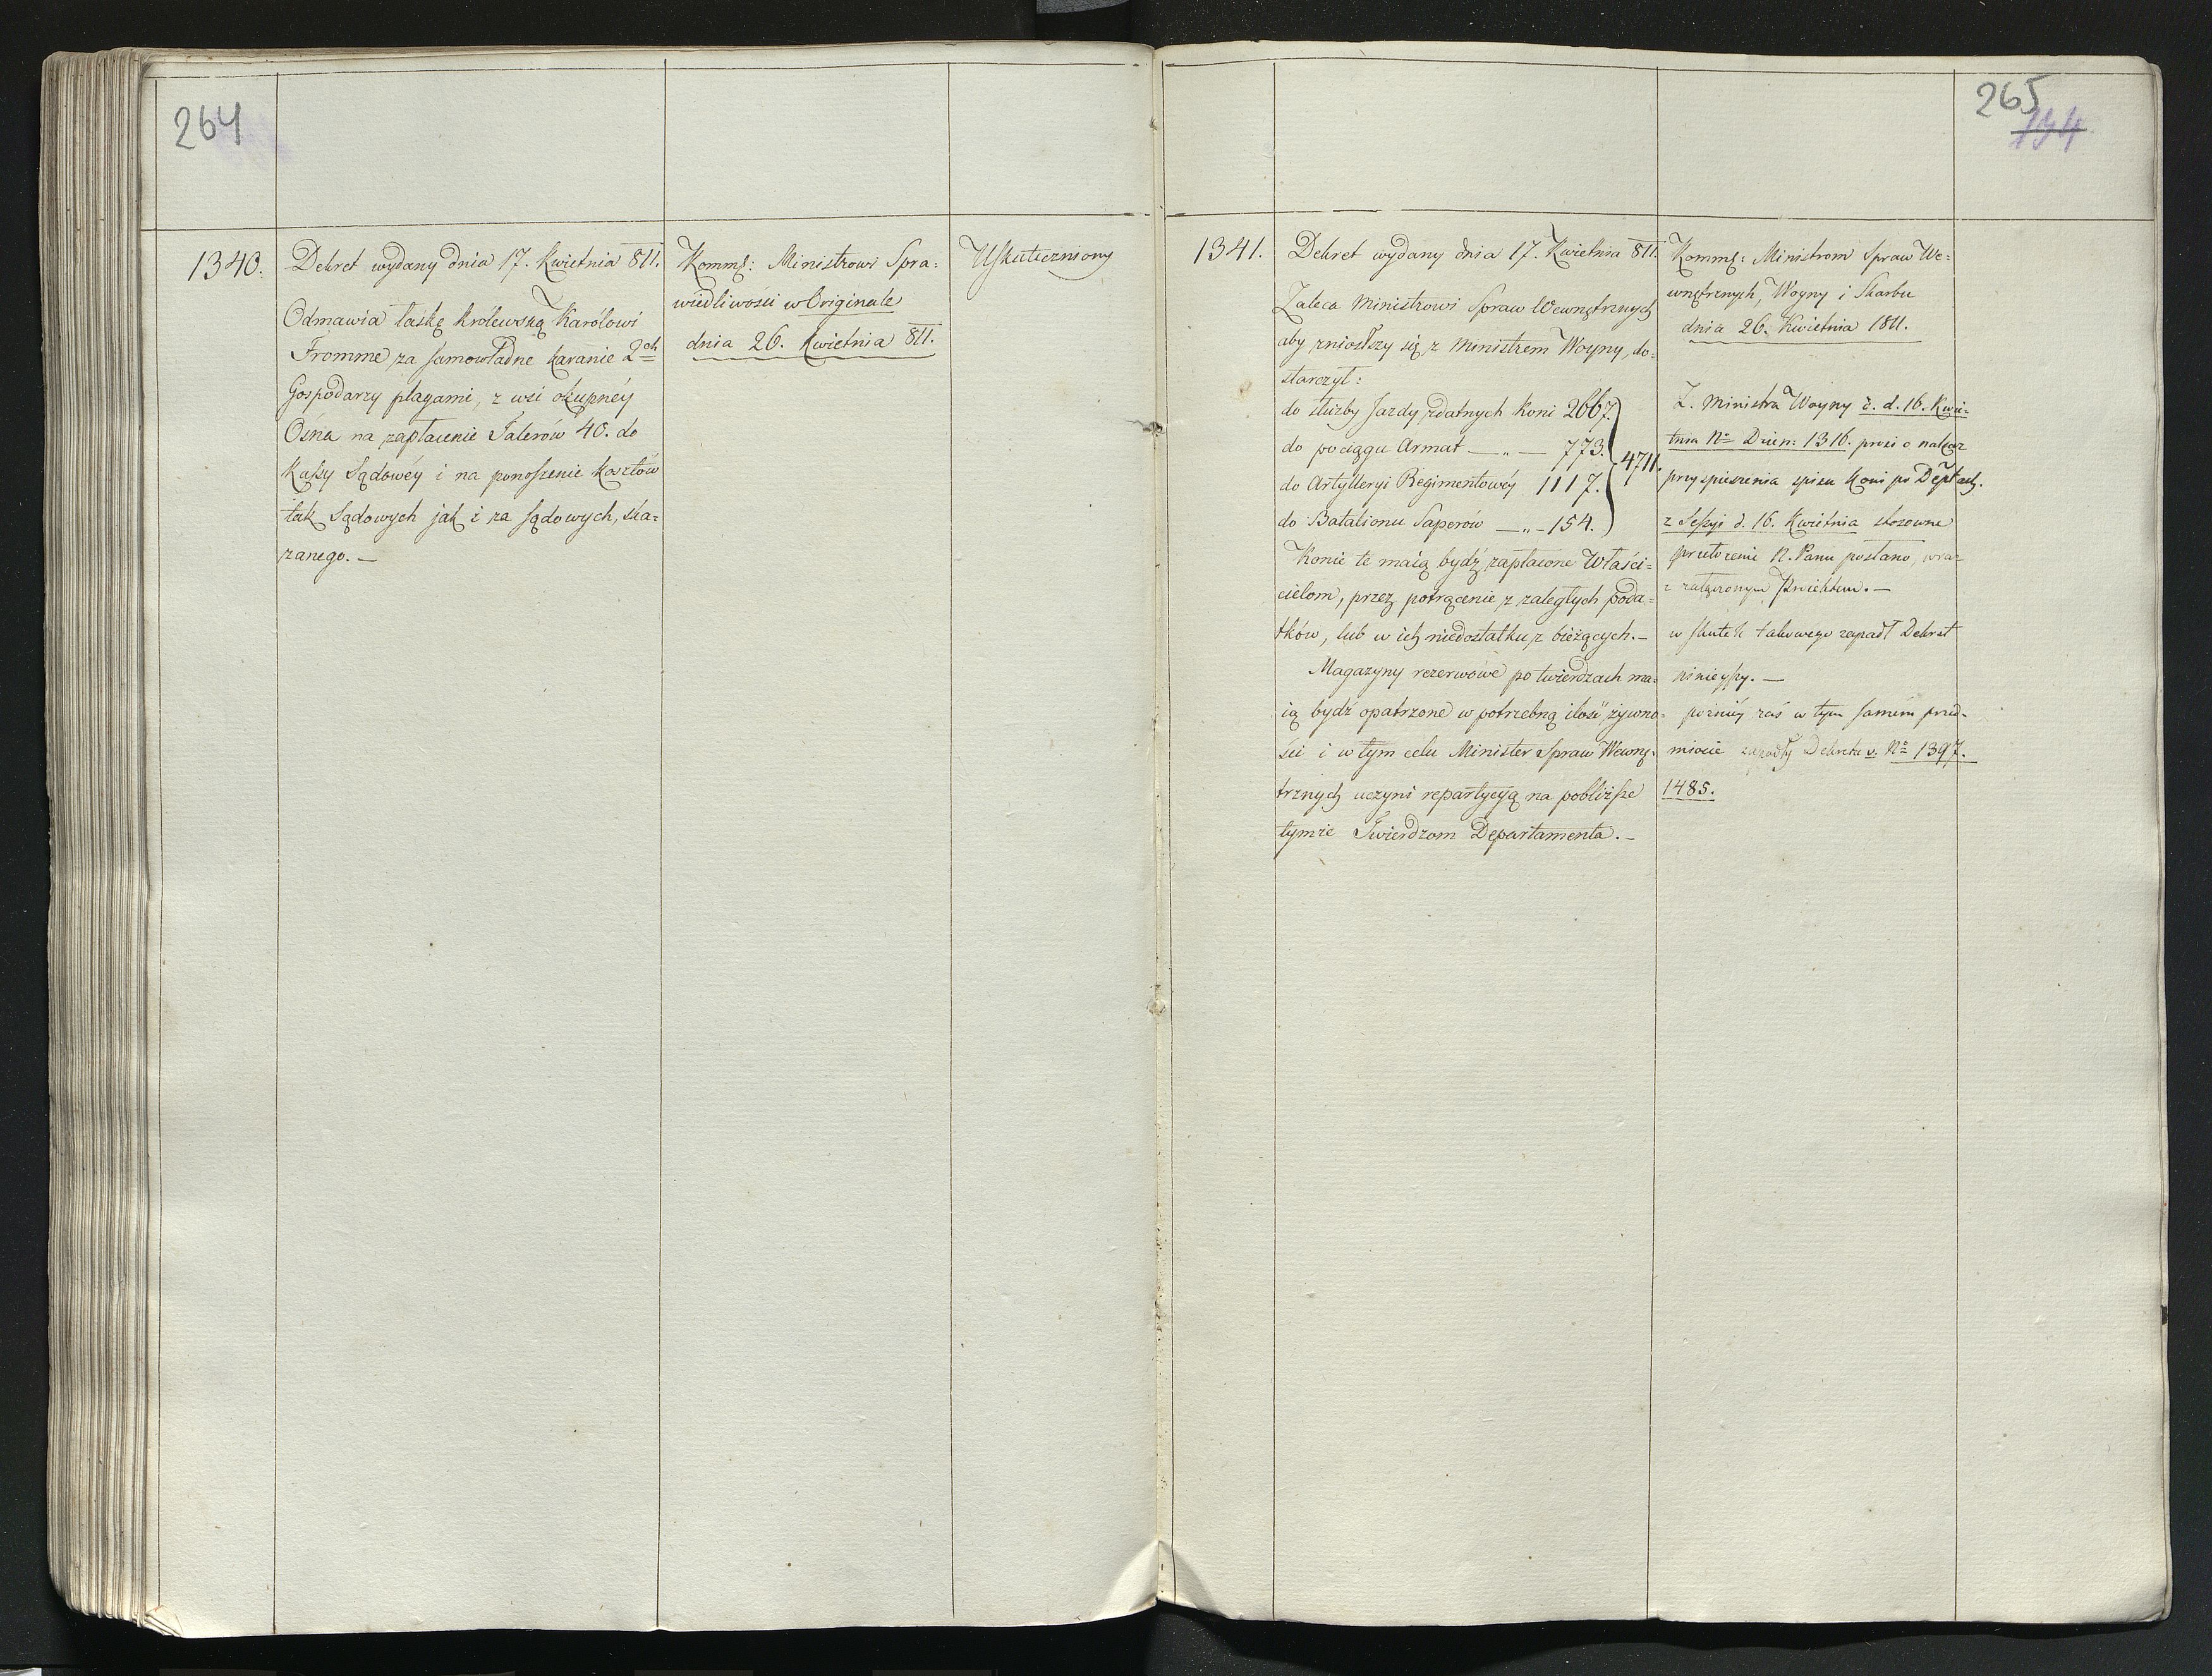 264
1340.
Dekret wydany dnia 17. Kwietnia 811.
Odmawia łaskę Królewską Karólowi
Fromme, za samowładne karanie 2ch
Gospodarzy plagami, z wsi okupnéy
Ośna na zapłacenie Talerów 40. do
Kassy Sądowéy i na ponoszenie kosztów
tak Sądowych jak i za sądowych, ska=
zanego. —
Kommẽ: Ministrowi Spra=
wiedliwości w Originale
dnia 26. Kwietnia 811.
Uskuteczniony
265
134
1341.
Dekret wydany dnia 17. Kwietnia 811.
Zaleca Ministrowi Spraw Wewnętrznych
aby zniosłszy się z Ministrem Woyny, do=
starczył:
do służby Jazdy zdatnych Koni 2667.
do pociągu Armat — „ — 773.
do Artylleryi Regimentowéy 1117.
do Batalionu Saperów — „ — 154.
4711.
Konie te maią bydź zapłacone Właści=
cielom, przez potrącenie z zaległych poda=
tków, lub w ich niedostatku z bieżących. —
Magazyny rezerwowe po twierdzach ma=
ią bydź opatrzone w potrzebną ilość żywno=
ści i w tym celu Minister Spraw Wewnę=
trznych uczyni repartycyą na pobliższe
tymże Twierdzom Departamenta. —
Kommẽ: Ministrom Spraw We=
wnętrznych, Woyny i Skarbu
dnia 26. Kwietnia 1811.
Z. Ministra Woyny z. d. 16. Kwie=
tnia No Dzien: 1316. prosi o nakaz
przyspieszenia spisu Koni po Deptach.
z Sessyi d. 16. Kwietnia stosowne
przełożenie N. Panu posłano, wraz
z załączonym Proiektem. —
w skutek takowego zapadł Dekret
ninieyszy. —
poźniéy zaś w tym samém przed=
miocie zapadły Dekreta v. No 1397.
1485.